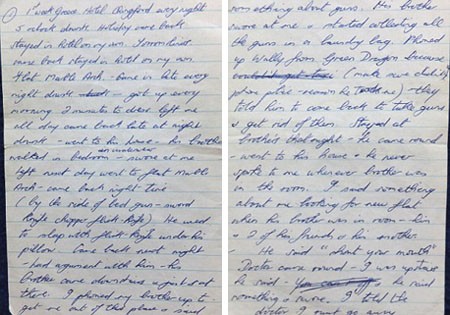 1st week Grove Hotel Chingford every night
5 o'clock drunk. Holiday came back
stayed in Hotel on my own.
came back stayed in Hotel on my own
Flat Marble Arch. Came in late every
night drunk - got up every
morning 2 minutes to dress left me
all day came back late at night
drunk - went to his house - his brother
walked in bedroom - swore at me
left next day went to flat Marble
Arch - came back night
(by the side of bed gun - sword
knife chopper flick knife) He used
to sleep with flick knife under his
pillow. Came back next night
- had argument with him - his
brother came downstairs
there. I phoned my brother up to
get me out of this place & said
something about guns. His brother
swore at me & started collecting all
the guns in a laundry bag. Phoned
up Wally from Green Dragon because
(make owe club)
phone police - reason he me) - they
told him to come back to take guns
& get rid of them. Stayed at
brothers that night - he came round
- went to his house & he never
spoke to me whenever brother was
in the room. I said something
about me looking for new flat
when his brother was in room - him
& 2 of his friends & his mother
- He said "shout your mouth"
Doctor came round - I was upstairs
he said - he said
something & swore. I told the
doctor I must go away